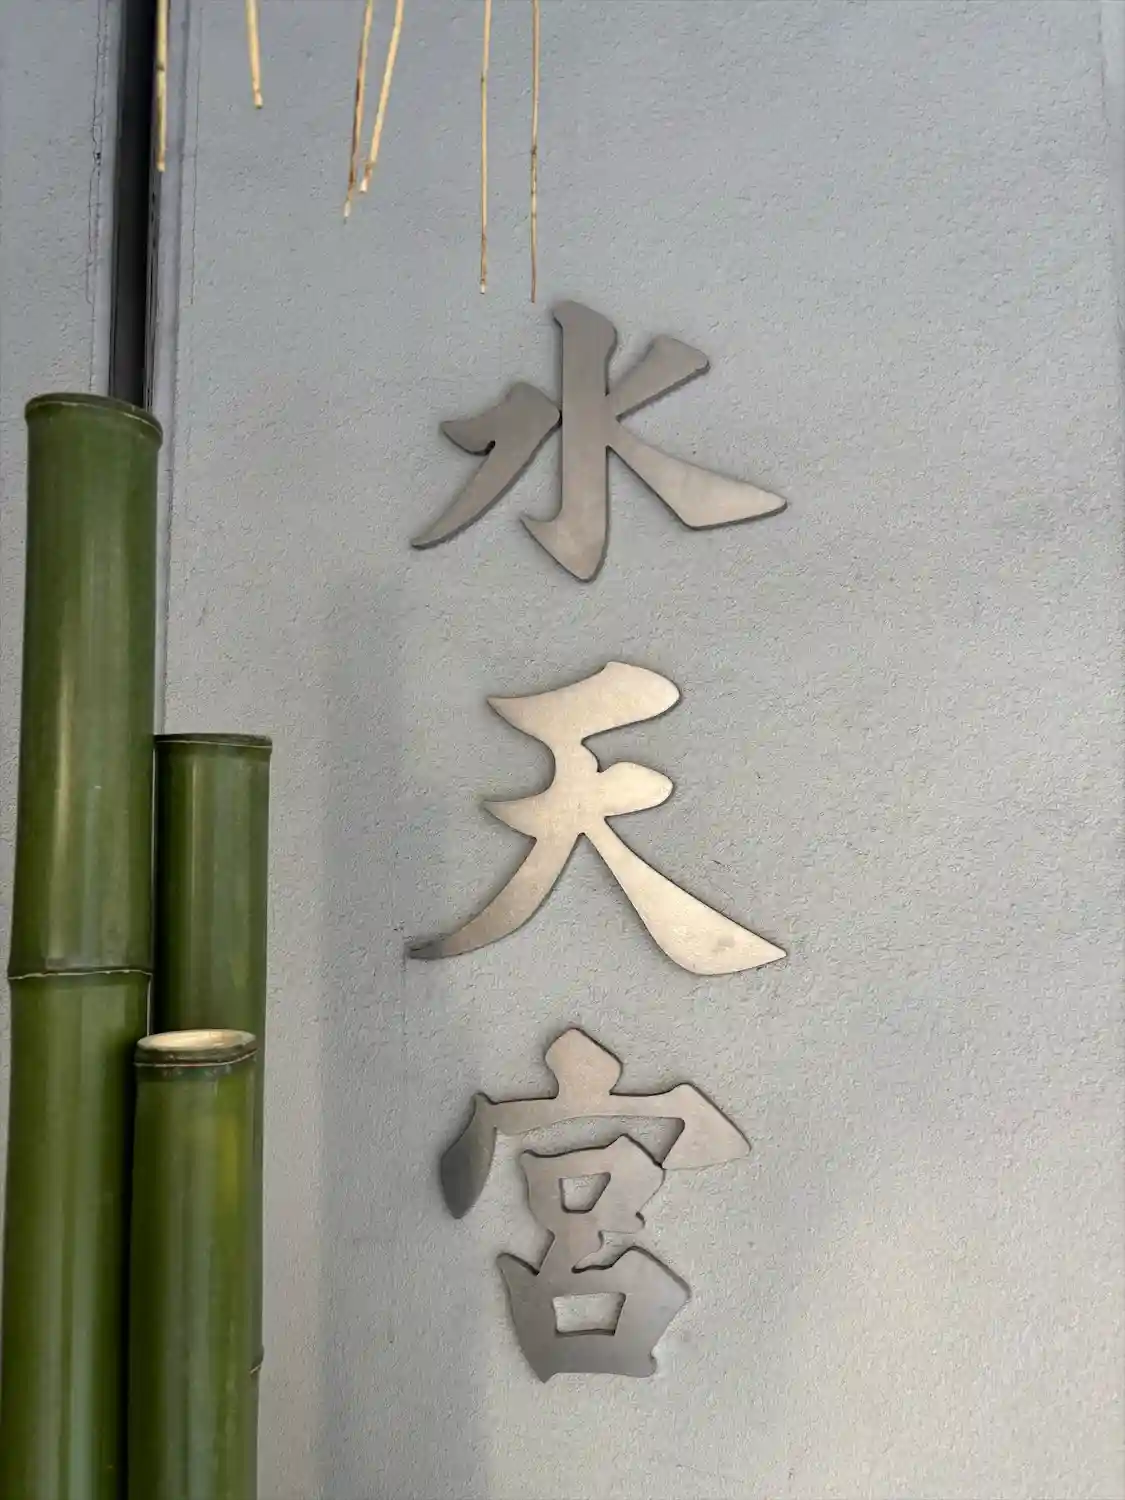 水天宮